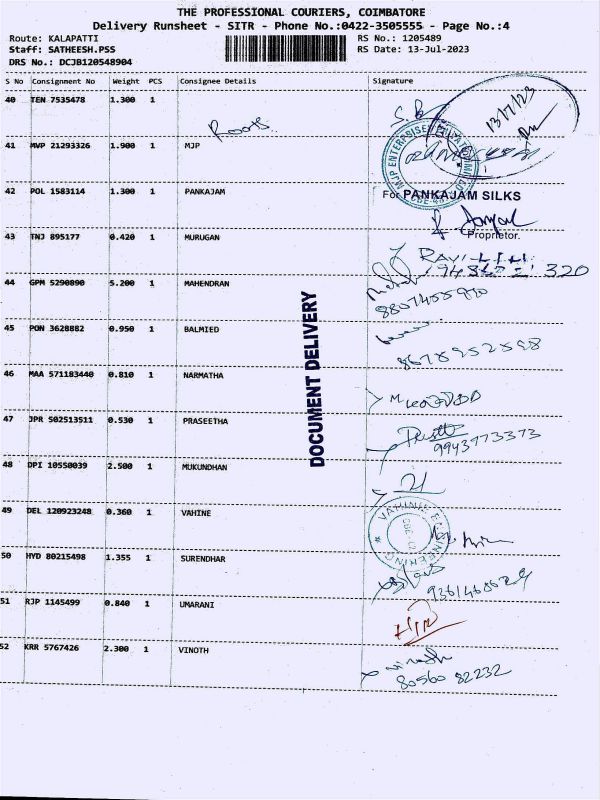 THE PROFESSIONAL COURIERS, COIMBATORE
Delivery Runsheet - SITR - Phone No.:0422-3505555 - Page No.:4
Route: KALAPATTI RS No.: 1205489
Staff: SATHEESH.PSS RS Date: 13-Jul-2023
DRS No.: DCJB120548904
S No Consignment No Weight PCS Consignee Details Signature
40 TEN 7535478 1.300 1
13/7/23
41 MVP 21293326 1.900 1 MJP
MJP ENTERPRISE
42 POL 1583114 1.300 1 PANKAJAM
For PANKAJAM SILKS
Proprietor.
43 TNJ 895177 0.420 1 MURUGAN
44 GPM 5290890 5.200 1 MAHENDRAN
45 PON 3628882 0.950 1 BALMIED
8678952598
46 MAA 571183440 0.810 1 NARMATHA
47 JPR 502513511 0.530 1 PRASEETHA
9943773373
48 DPI 10550039 2.500 1 MUKUNDHAN
49 DEL 120923248 0.360 1 VAHINE
VAHINIE ENGINEERING
50 HYD 80215498 1.355 1 SURENDHAR
51 RJP 1145499 0.840 1 UMARANI
52 KRR 5767426 2.300 1 VINOTH
80560 82232
DOCUMENT DELIVERY